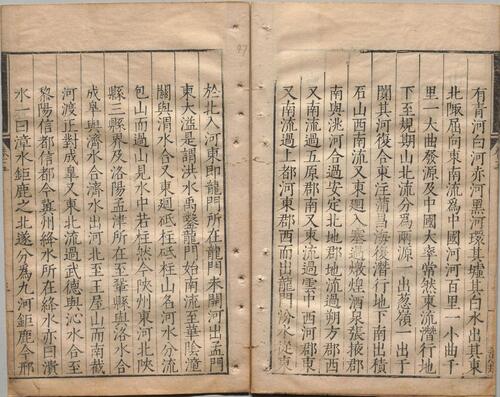 有青河白河赤河黑河環其墟其白水出其東
北陬屈向東南流為中國河河百里一小曲千
里一大曲發源及中國大率常然東流潛行地
下至規期山北流分為兩源一出葱嶺一出于
闐其河復合東注蒲昌海復潛行地下南出積
石山西南流又東迴入塞過燉煌酒泉張掖郡
南與洮河合過安定北地郡北流過朔方郡西
又南流過五原郡南又東流過雲中西河郡東
又南流過上郡河東郡西而出龍門汾水從東
於北入河東即龍門所在龍門未開河出孟門
東大溢是謂洪水禹鑿龍門始南流至華陰潼
關與渭水合又東迴砥柱砥柱山名河水分流
包山而過山見水中若柱然今陝州東河北陝
縣三縣界及洛陽孟津所在至鞏縣與洛水合
成皋與濟水合濟水出河北至王屋山而南截
河渡正對成皋又東北流過武德與沁水合至
黎陽信都信都今冀州絳水所在絳水亦曰潰
水一曰漳水鉅鹿之北遂分為九河鉅鹿今邢